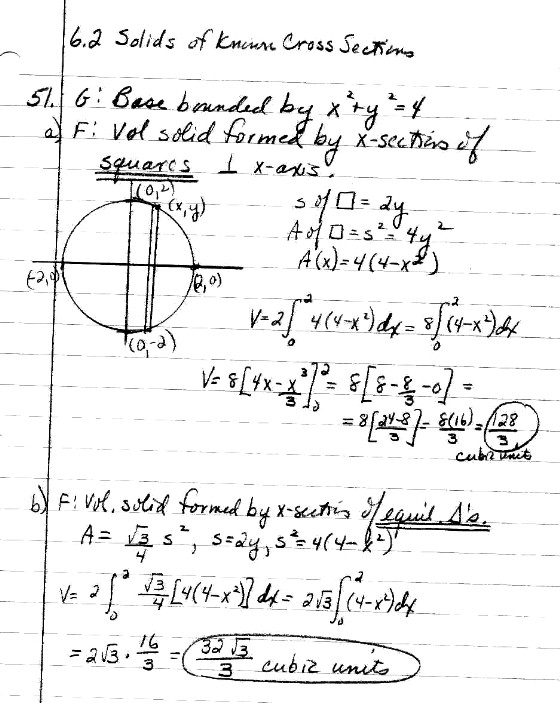 6.2 Solids of Known Cross Sections
51. G: Base bounded by x²+y²=4
a) F: Vol solid formed by x-sections of
squares ⊥ x-axis.
(0,2)
(x,y)
(-2,0)
(2,0)
(0,-2)
s of □ = 2y
A of □ = s² = 4y²
A(x) = 4(4-x²)
V = 2∫₀² 4(4-x²)dx = 8∫₀²(4-x²)dx
V = 8[4x - x³/3]₀² = 8[8 - 8/3 - 0] =
= 8[(24-8)/3] = 8(16)/3 = 128/3
cubic units
b) F: Vol. solid formed by x-sections of equil. Δ's.
A = √3/4 s², s=2y, s²= 4(4-x²)
V = 2∫₀² √3/4 [4(4-x²)] dx = 2√3∫₀²(4-x²)dx
= 2√3 · 16/3 = 32√3/3 cubic units